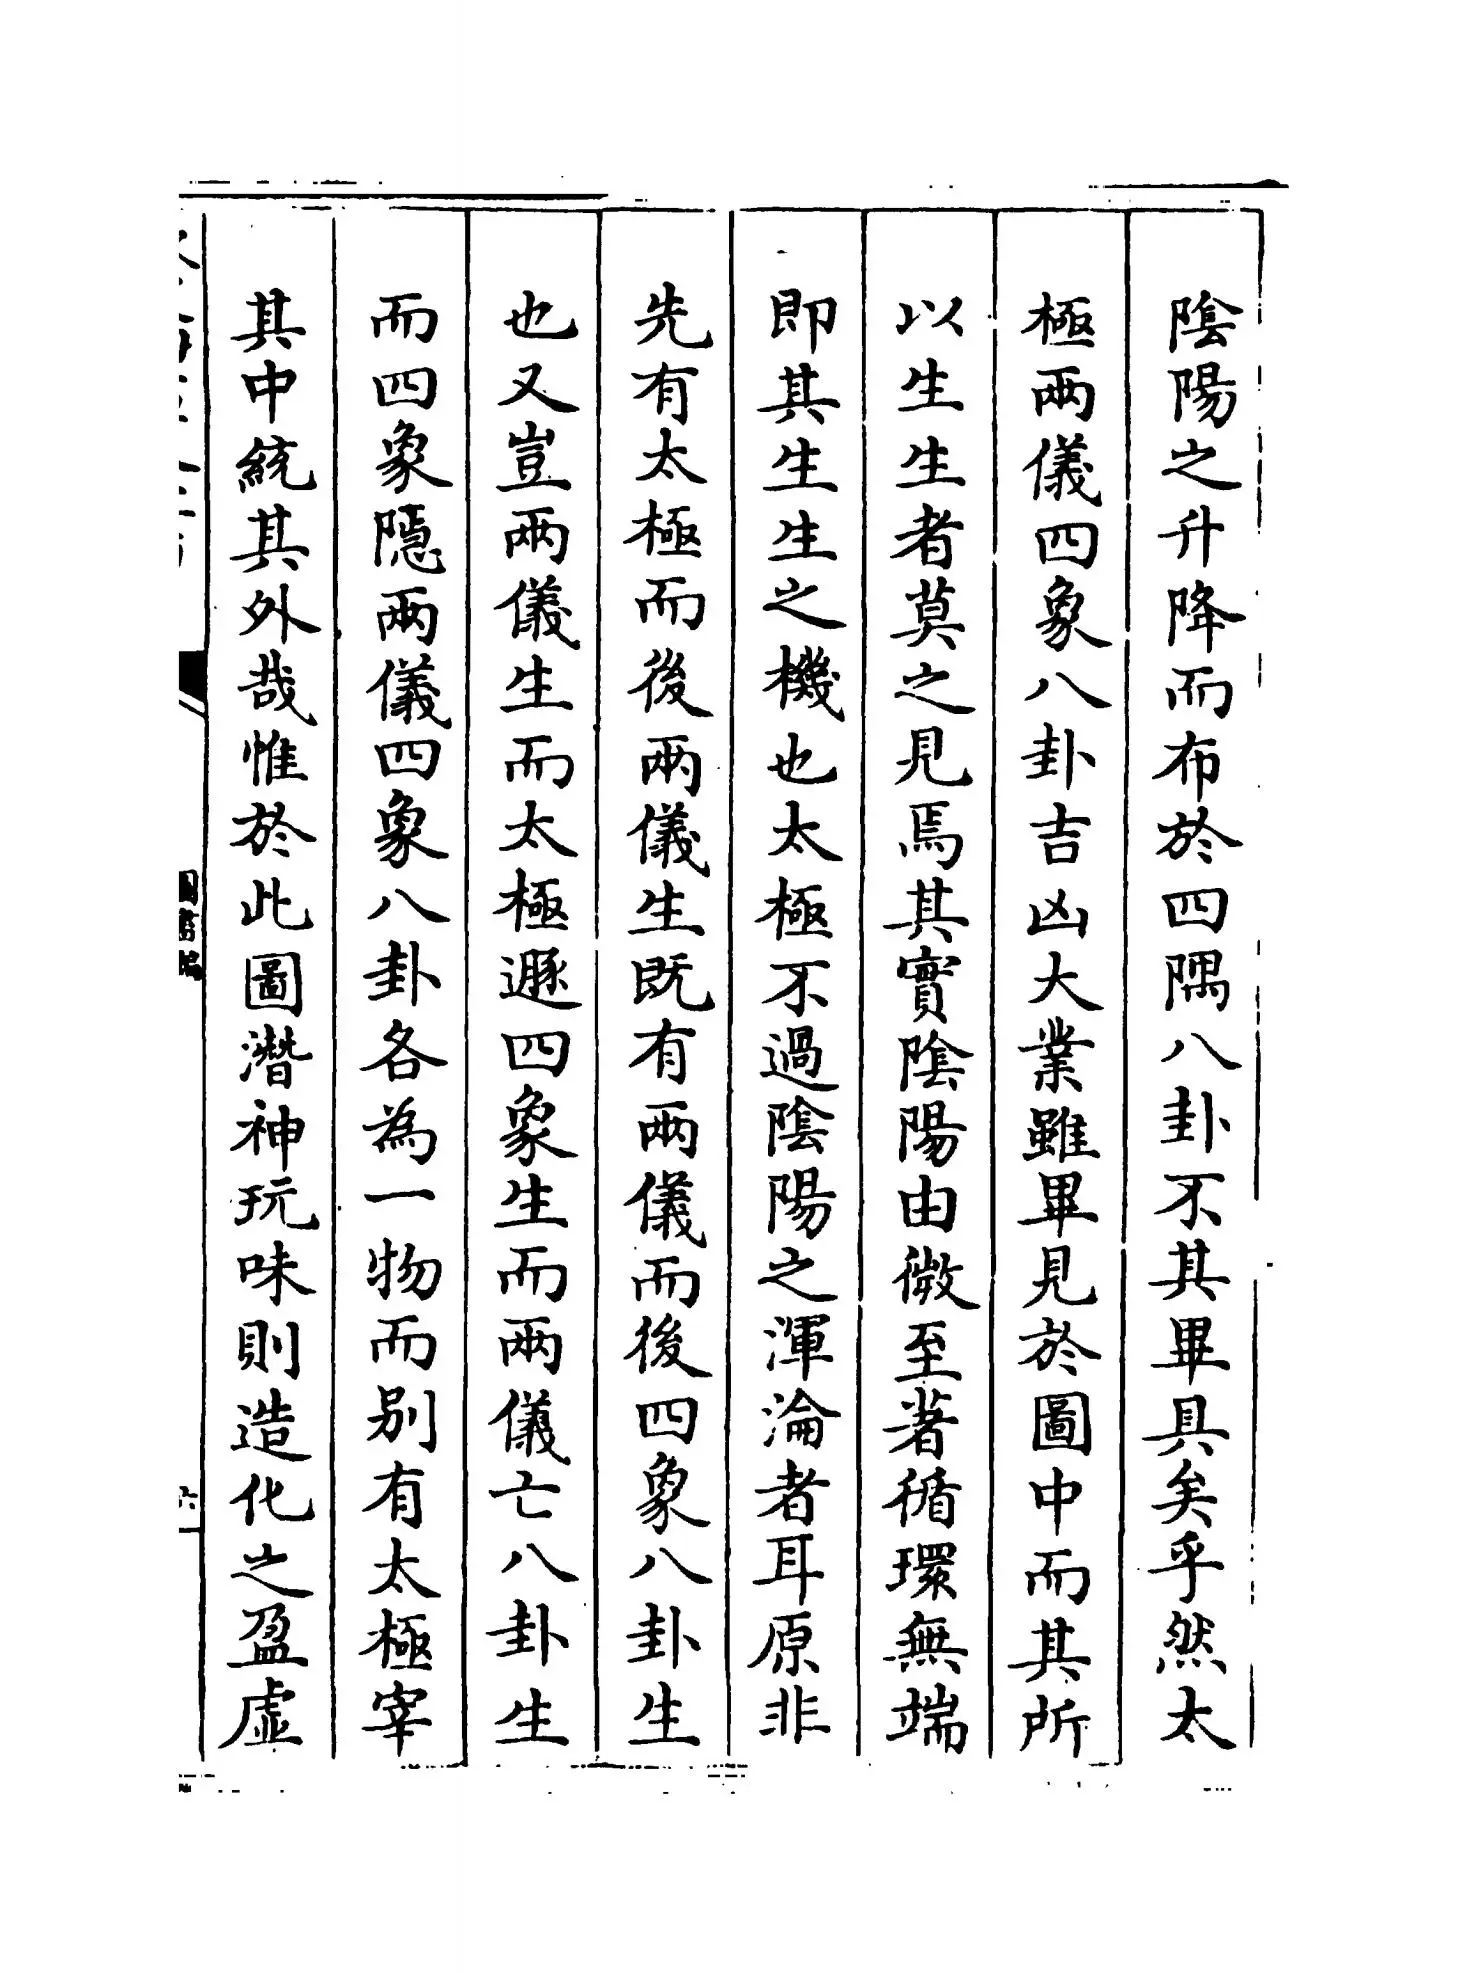 陰陽之升降而布於四隅八卦不其畢具矣乎然太
極兩儀四象八卦吉凶大業雖畢見於圖中而其所
以生生者莫之見焉其實陰陽由微至著循環無端
即其生生之機也太極不過陰陽之渾淪者耳原非
先有太極而後兩儀生既有兩儀而後四象八卦生
也又豈兩儀生而太極遯四象生而兩儀亡八卦生
而四象隱兩儀四象八卦各為一物而别有太極宰
其中統其外哉惟於此圖潛神玩味則造化之盈虛
圖書編